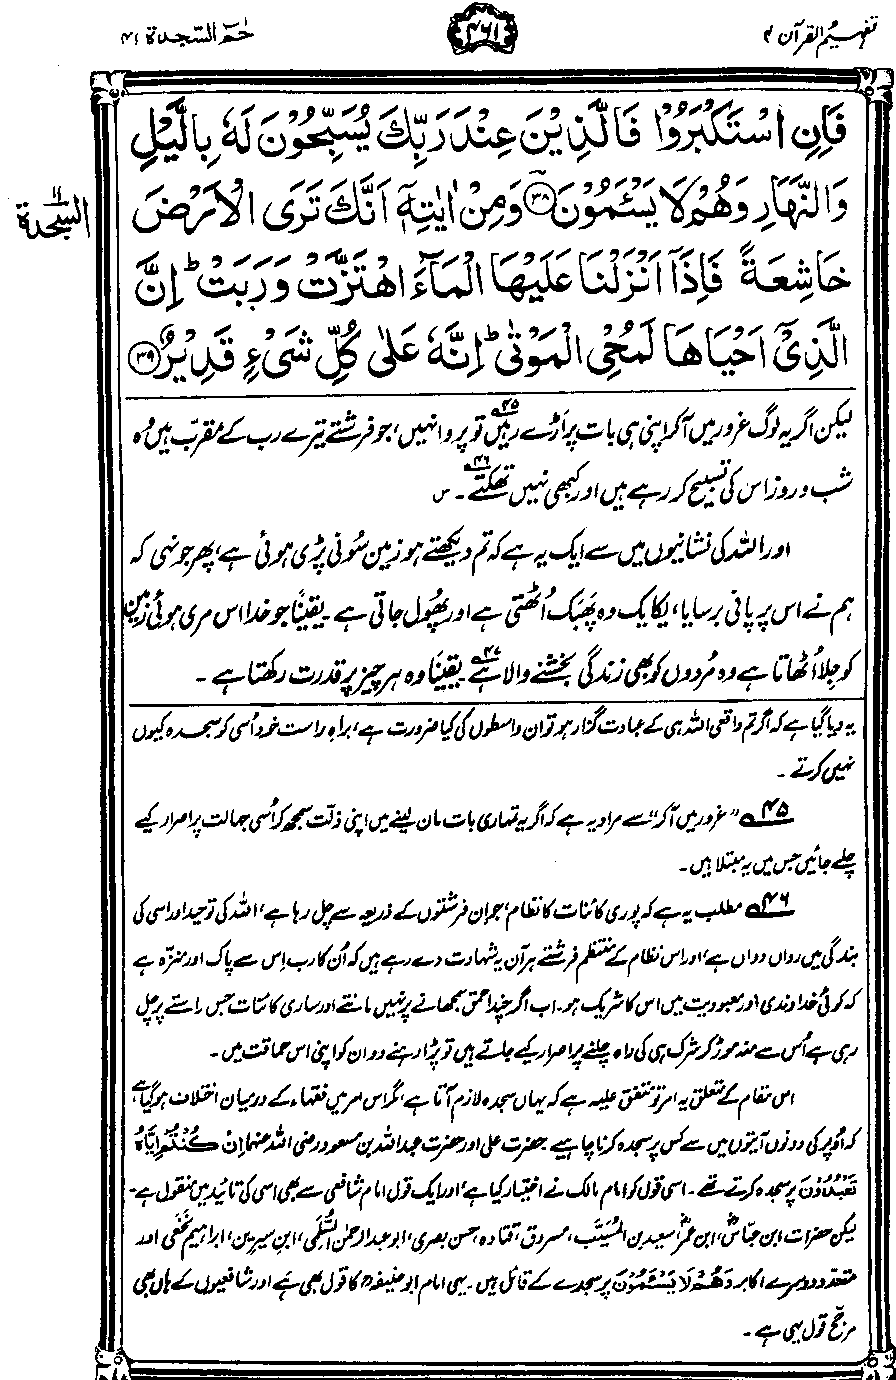 تفہیم القرآن ۴
۴۶۱
حٰمٓ السّجدۃ ۴۱
فَاِنِ اسْتَكْبَرُوْا فَالَّذِيْنَ عِنْدَ رَبِّكَ يُسَبِّحُوْنَ لَهٗ بِالَّيْلِ
وَالنَّهَارِ وَهُمْ لَا يَسْـَٔمُوْنَ ۩ ﴿۳۸﴾ وَمِنْ اٰيٰتِهٖٓ اَنَّكَ تَرَى الْاَرْضَ
السّجدۃ ۱۱
خَاشِعَةً فَاِذَآ اَنْزَلْنَا عَلَيْهَا الْمَآءَ اهْتَزَّتْ وَرَبَتْ ؕ اِنَّ
الَّذِيْٓ اَحْيَاهَا لَمُحْيِ الْمَوْتٰى ؕ اِنَّهٗ عَلٰى كُلِّ شَيْءٍ قَدِيْرٌ ﴿۳۹﴾
لیکن اگر یہ لوگ غرور میں آکر اپنی ہی بات پر اَڑے رہیں ۴۵؎ تو پروا نہیں، جو فرشتے تیرے رب کے مقرّب ہیں وہ
شب و روز اس کی تسبیح کر رہے ہیں اور کبھی نہیں تھکتے ۴۶؎ ۔ س
اور اللہ کی نشانیوں میں سے ایک یہ ہے کہ تم دیکھتے ہو زمین سُونی پڑی ہوئی ہے، پھر جونہی کہ
ہم نے اس پر پانی برسایا، یکایک وہ پھَبَک اُٹھتی ہے اور پھُول جاتی ہے۔ یقینًا جو خدا اس مری ہوئی زمین
کو جِلا اُٹھاتا ہے وہ مُردوں کو بھی زندگی بخشنے والا ہے ۴۷؎ یقینًا وہ ہر چیز پر قدرت رکھتا ہے۔
یہ دیا گیا ہے کہ اگر تم واقعی اللہ ہی کے عبادت گذار ہو تو ان واسطوں کی کیا ضرورت ہے، براہِ راست خود اُسی کو سجدہ کیوں
نہیں کرتے۔
۴۵؎ ”غرور میں آکر“ سے مراد یہ ہے کہ اگر یہ تمہاری بات مان لینے میں اپنی ذلّت سمجھ کر اُسی جہالت پر اصرار کیے
چلے جائیں جس میں یہ مبتلا ہیں۔
۴۶؎ مطلب یہ ہے کہ پوری کائنات کا نظام، جو ان فرشتوں کے ذریعہ سے چل رہا ہے، اللہ کی توحید اور اسی کی
بندگی میں رواں دواں ہے، اور اس نظام کے منتظم فرشتے ہر آن یہ شہادت دے رہے ہیں کہ اُن کا رب اِس سے پاک اور منزّہ ہے
کہ کوئی خداوندی اور معبودیت میں اس کا شریک ہو۔ اب اگر چند احمق سمجھانے پر نہیں مانتے اور ساری کائنات جس راستے پر چل
رہی ہے اُس سے منہ موڑ کر شرک ہی کی راہ چلنے پر اصرار کیے جاتے ہیں تو پڑا رہنے دو ان کو اپنی اس حماقت میں۔
اس مقام کے متعلق یہ امر تو متفق علیہ ہے کہ یہاں سجدہ لازم آتا ہے، مگر اس امر میں فقہاء کے درمیان اختلاف ہو گیا ہے
کہ اُوپر کی دونوں آیتوں میں سے کس پر سجدہ کرنا چاہیے۔ حضرت علی اور حضرت عبداللہ بن مسعود رضی اللہ عنہما اِنْ كُنْتُمْ اِيَّاهُ
تَعْبُدُوْنَ پر سجدہ کرتے تھے۔ اسی قول کو امام مالک نے اختیار کیا ہے، اور ایک قول امام شافعی سے بھی اسی کی تائید میں منقول ہے۔
لیکن حضرات ابن عباسؓ، ابن عمرؓ، سعید بن المُسَیَّب، مسروق، قتادہ، حسن بصری، ابو عبدالرحمٰن السُّلَمی، ابن سیرین، ابراہیم نَخَعی اور
متعدد دوسرے اکابر وَهُمْ لَا يَسْـَٔمُوْنَ پر سجدے کے قائل ہیں۔ یہی امام ابو حنیفہؒ کا قول بھی ہے اور شافعیوں کے ہاں بھی
مرجَّح قول یہی ہے۔